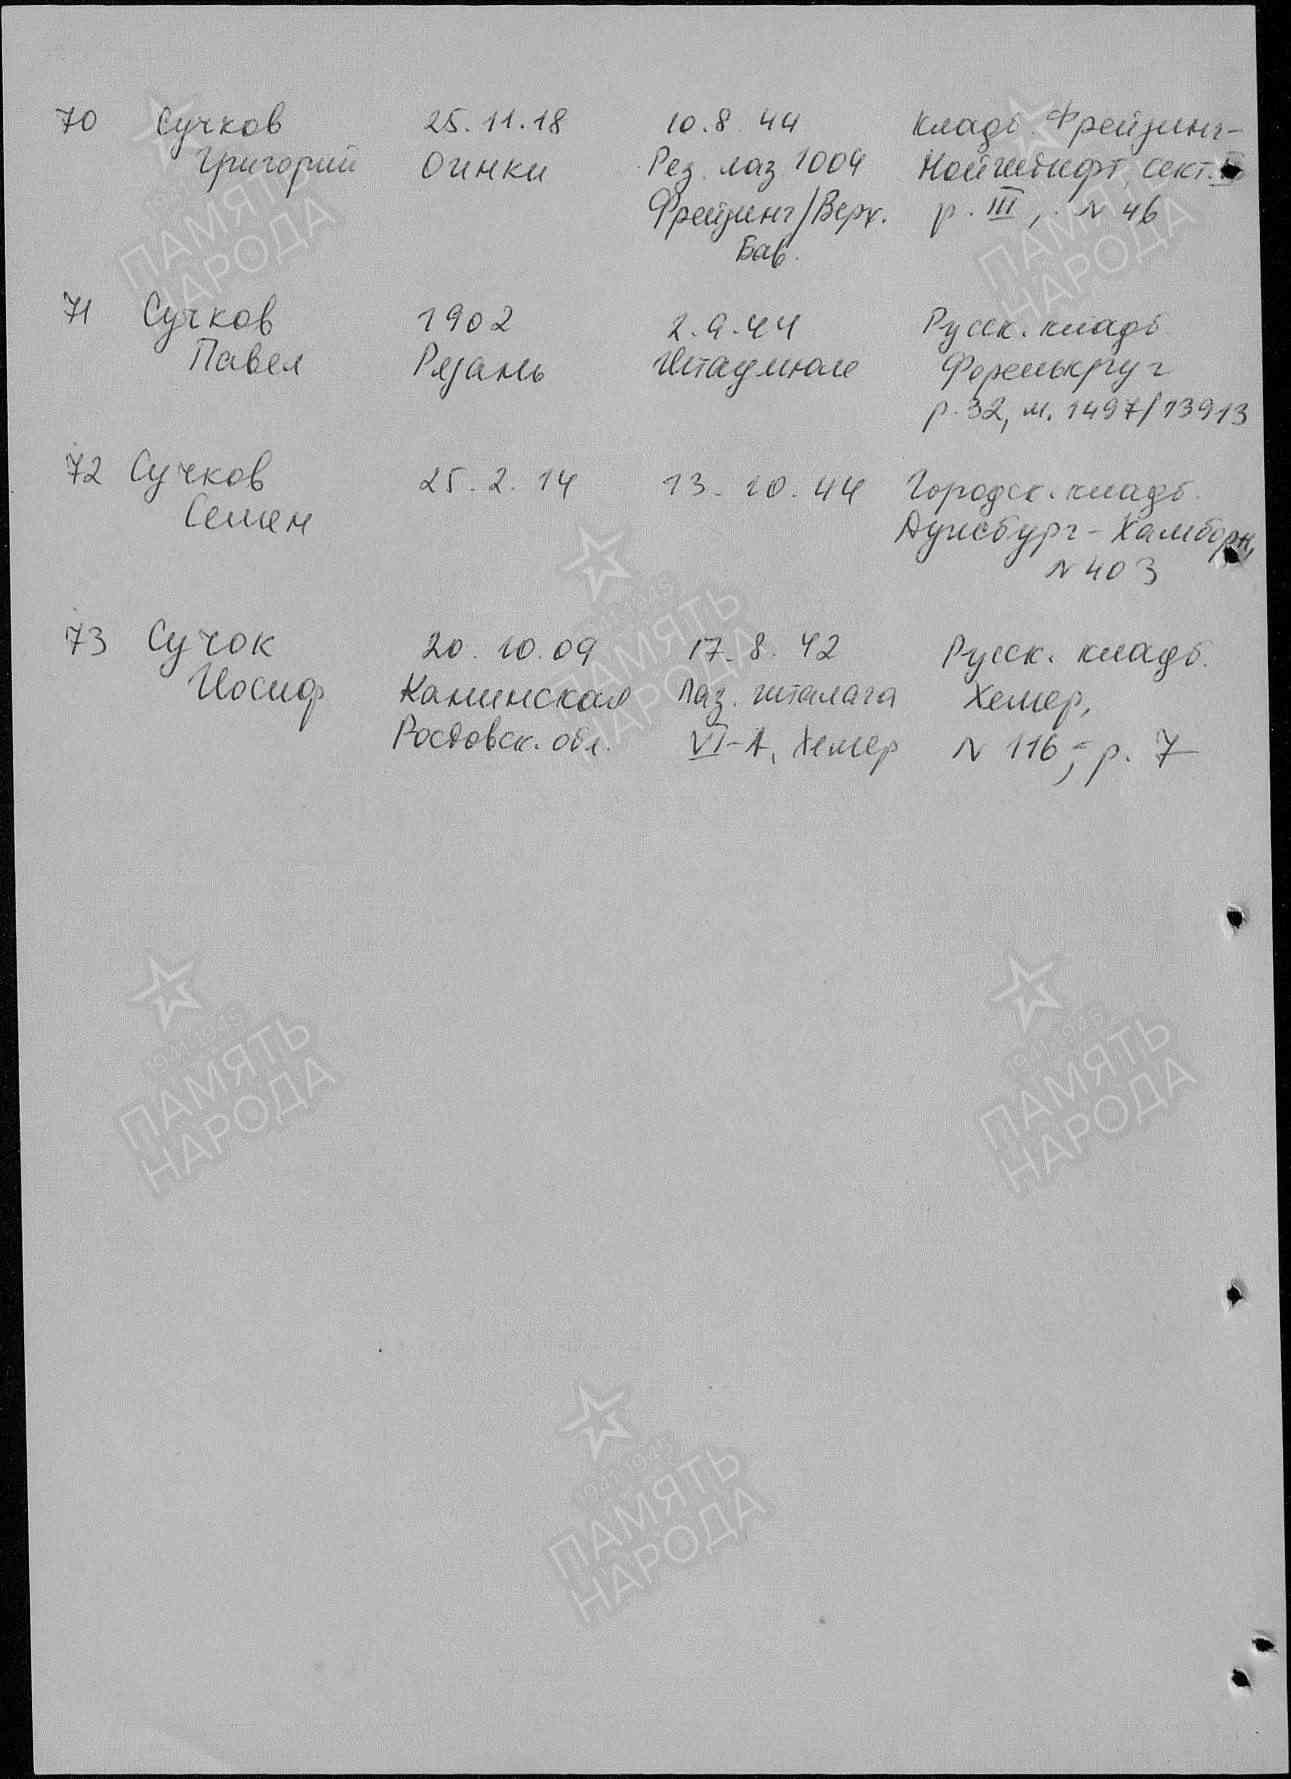 70 Сучков 25.11.18 10.8.44 кладб. Фрейзинг-
Григорий Огинки Рез. лаз 1004 Нойштифт, сект.
Фрейзинг/Верх. р. III, N 46
Бав.
71 Сучков 1902 2.9.44 Русск. кладб
Павел Рязань Штаумюле Форелькруг
р. 32, м. 1497/13913
72 Сучков 25.2.14 13.10.44 Городск. кладб.
Семен Дуисбург-Хамборн,
N 403
73 Сучок 20.10.09 17.8.42 Русск. кладб.
Иосиф Каминская Лаз. шталага Хемер,
Ростовск. обл. VI-A, Хемер N 116, р. 7
1941-1945
ПАМЯТЬ
НАРОДА